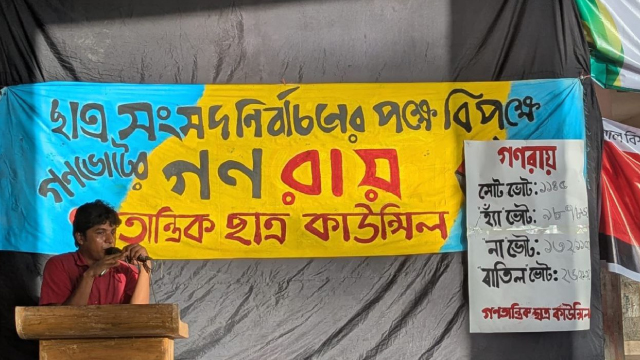 ছাত্র সংসদ নির্বাচনের পক্ষে বিপক্ষে
গণভোটের
গণ রায়
তান্ত্রিক ছাত্র কাউন্সিল
গণরায়
মোট ভোট:
হ্যাঁ ভোট:
না ভোট:
বাতিল ভোট:
গণতান্ত্রিক ছাত্র কাউন্সিল